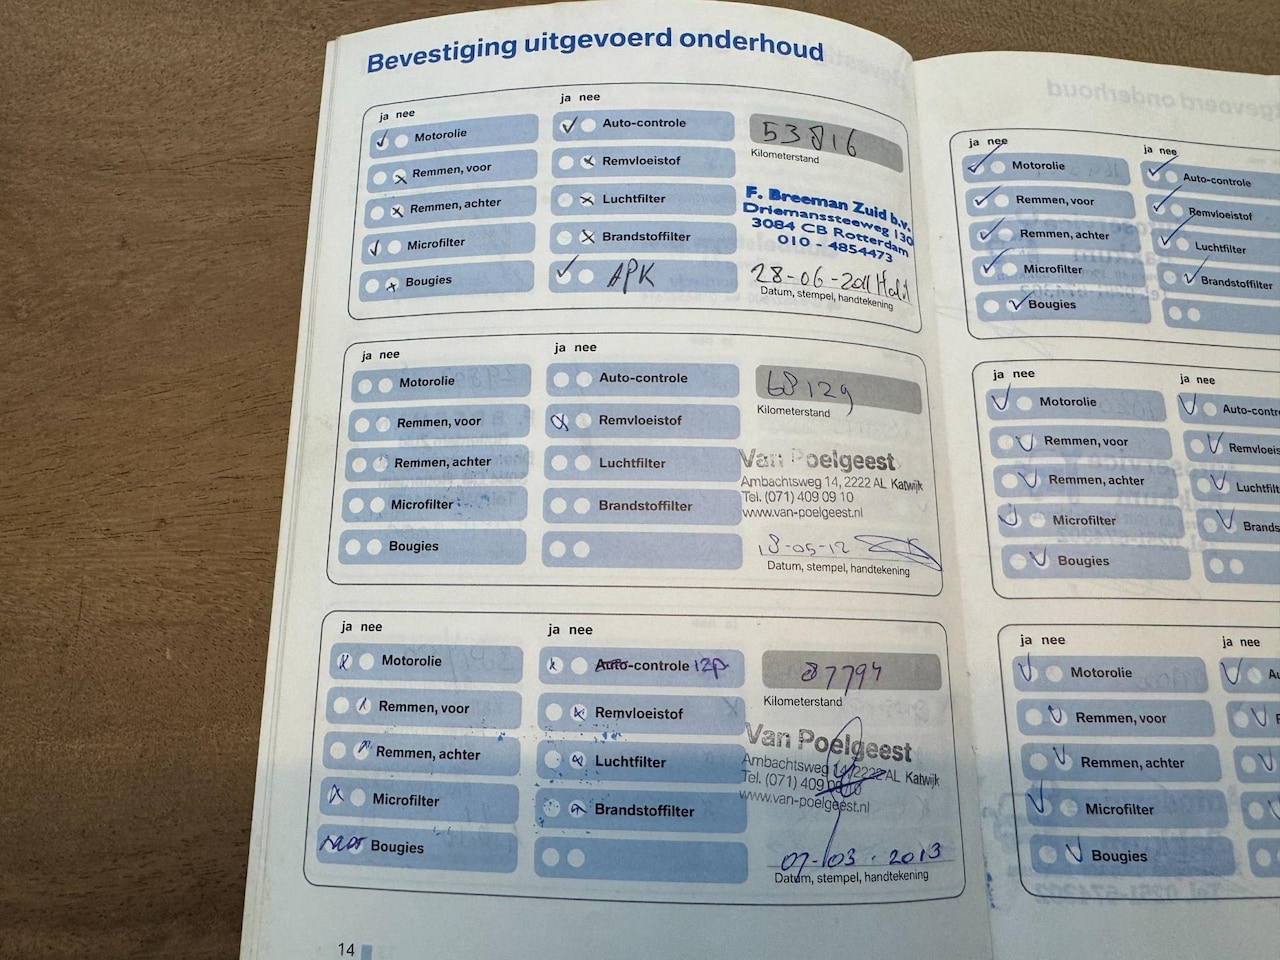 Bevestiging uitgevoerd onderhoud
ja nee
Motorolie
Remmen, voor
Remmen, achter
Microfilter
Bougies
ja nee
Auto-controle
Remvloeistof
Luchtfilter
Brandstoffilter
APK
53816
Kilometerstand
F. Breeman Zuid b.v.
Driemanssteeweg 130
3084 CB Rotterdam
010 - 4854473
28-06-2011
Datum, stempel, handtekening
ja nee
Motorolie
Remmen, voor
Remmen, achter
Microfilter
Bougies
ja nee
Auto-controle
Remvloeistof
Luchtfilter
Brandstoffilter
68129
Kilometerstand
Van Poelgeest
Ambachtsweg 14, 2222 AL Katwijk
Tel. (071) 409 09 10
www.van-poelgeest.nl
18-05-12
Datum, stempel, handtekening
ja nee
Motorolie
Remmen, voor
Remmen, achter
Microfilter
Bougies
ja nee
Auto-controle
Remvloeistof
Luchtfilter
Brandstoffilter
87794
Kilometerstand
Van Poelgeest
Ambachtsweg 14, 2222 AL Katwijk
Tel. (071) 409 09 10
www.van-poelgeest.nl
07-03-2013
Datum, stempel, handtekening
14
ja nee
Motorolie
Remmen, voor
Remmen, achter
Microfilter
Bougies
ja nee
Auto-controle
Remvloeistof
Luchtfilter
Brandstoffilter
ja nee
Motorolie
Remmen, voor
Remmen, achter
Microfilter
Bougies
ja nee
Auto-contr
Remvloeis
Luchtfilt
Brands
ja nee
Motorolie
Remmen, voor
Remmen, achter
Microfilter
Bougies
ja nee